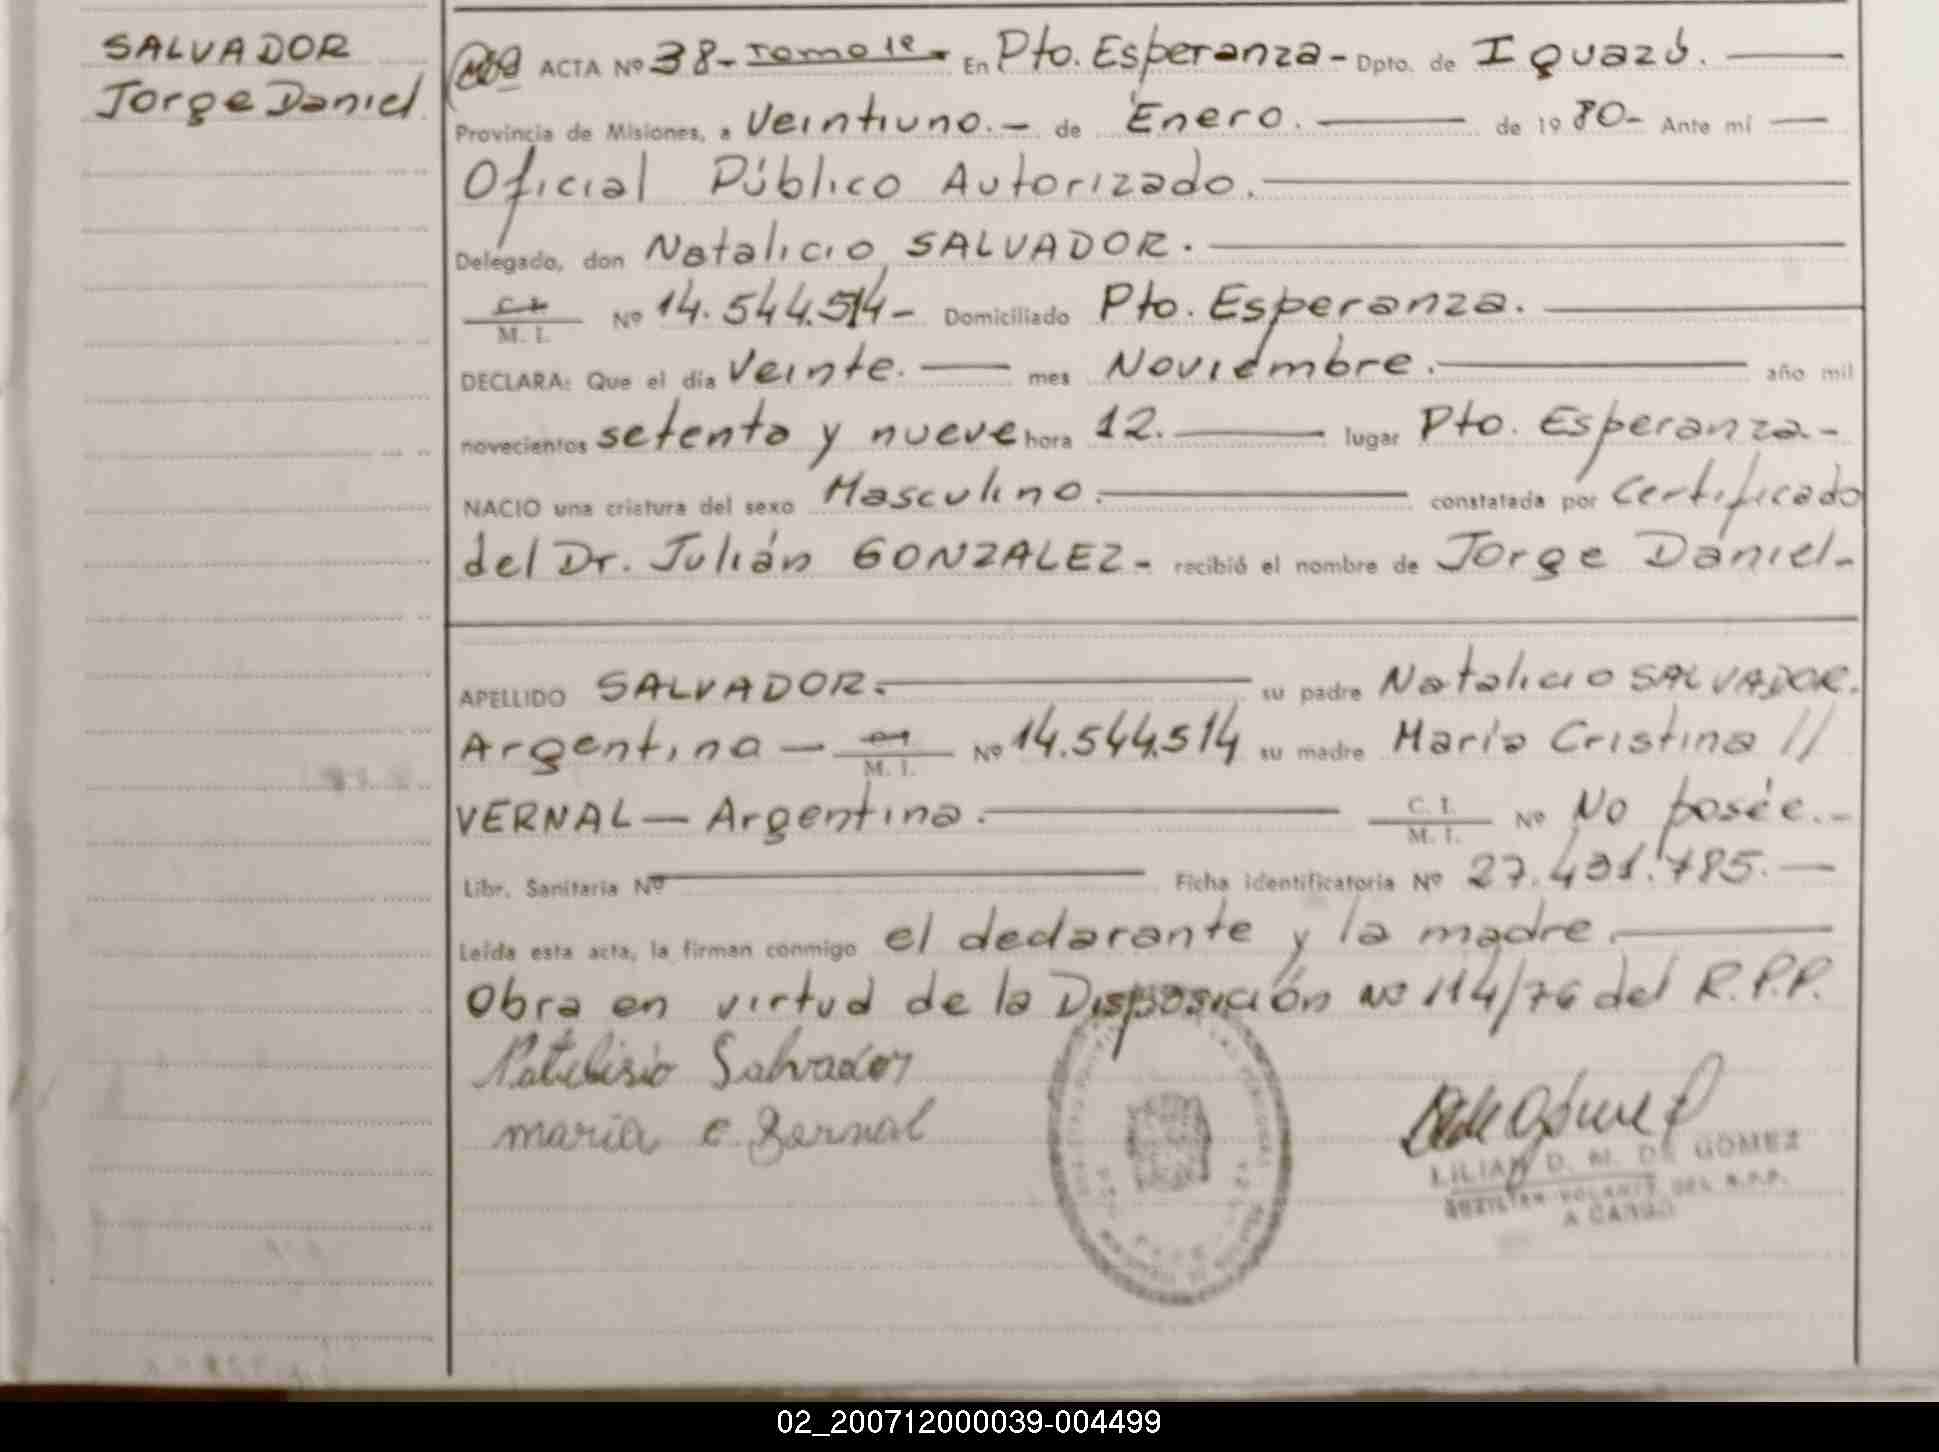 SALVADOR
Jorge Daniel
ACTA Nº 38- Tomo 1º- En Pto. Esperanza- Dpto. de Iguazú.
Provincia de Misiones, a Veintiuno.- de Enero. de 19 80- Ante mí
Oficial Público Autorizado.
Delegado, don Natalicio SALVADOR.
C.I. M. I. Nº 14.544.514- Domiciliado Pto. Esperanza.
DECLARA: Que el día Veinte. mes Noviembre. año mil
novecientos setenta y nueve hora 12. lugar Pto. Esperanza-
NACIO una criatura del sexo Masculino. constatada por Certificado
del Dr. Julián GONZALEZ- recibió el nombre de Jorge Daniel-
APELLIDO SALVADOR. su padre Natalicio SALVADOR.
Argentino — M. I. Nº 14.544.514 su madre María Cristina //
VERNAL — Argentina. C. I. M. I. Nº No posée.-
Libr. Sanitaria Nº Ficha identificatoria Nº 27.431.785.-
Leída esta acta, la firman conmigo el declarante y la madre.
Obra en virtud de la Disposición Nº 114/76 del R.P.P.
Natalisio Salvador
maria c Bernal
LILIAN D. M. DE GOMEZ
AUXILIAR VOLANTE DEL R.P.P.
A CARGO
02_200712000039-004499